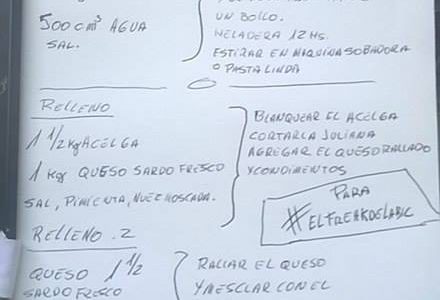 500 cm³ AGUA
SAL.
UN BOLLO.
HELADERA 12 HS.
ESTIRAR EN MAQUINA SOBADORA
O PASTA LINDA
RELLENO
1 1/2 Kg ACELGA
1 Kgr QUESO SARDO FRESCO
SAL, PIMIENTA, NUEZ MOSCADA.
BLANQUEAR EL ACELGA
CORTARLA JULIANA
AGREGAR EL QUESO RALLADO
Y CONDIMENTOS
PARA
#ELFREAKDELABIC
RELLENO. 2
QUESO 1 1/2
SARDO FRESCO
RALLAR EL QUESO
Y MESCLAR CON EL